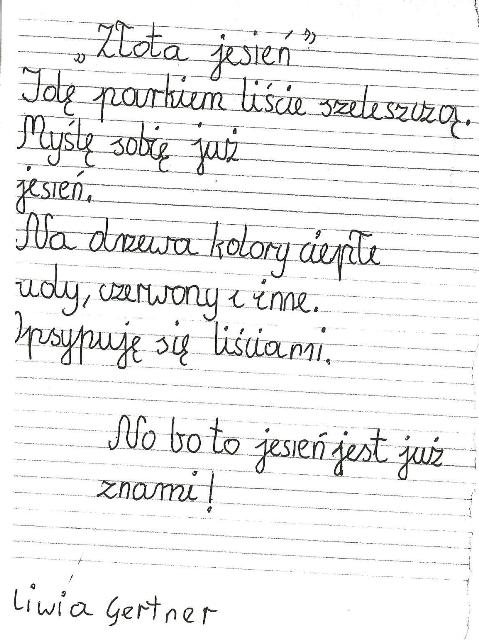 „Złota jesień”
Idę parkiem liście szeleszczą.
Myślę sobię już
jesień.
Na drzewa kolory ciepłe
rudy, czerwony i inne.
Opsypuję się liściami.
No bo to jesień jest już
znami!
Liwia Gertner